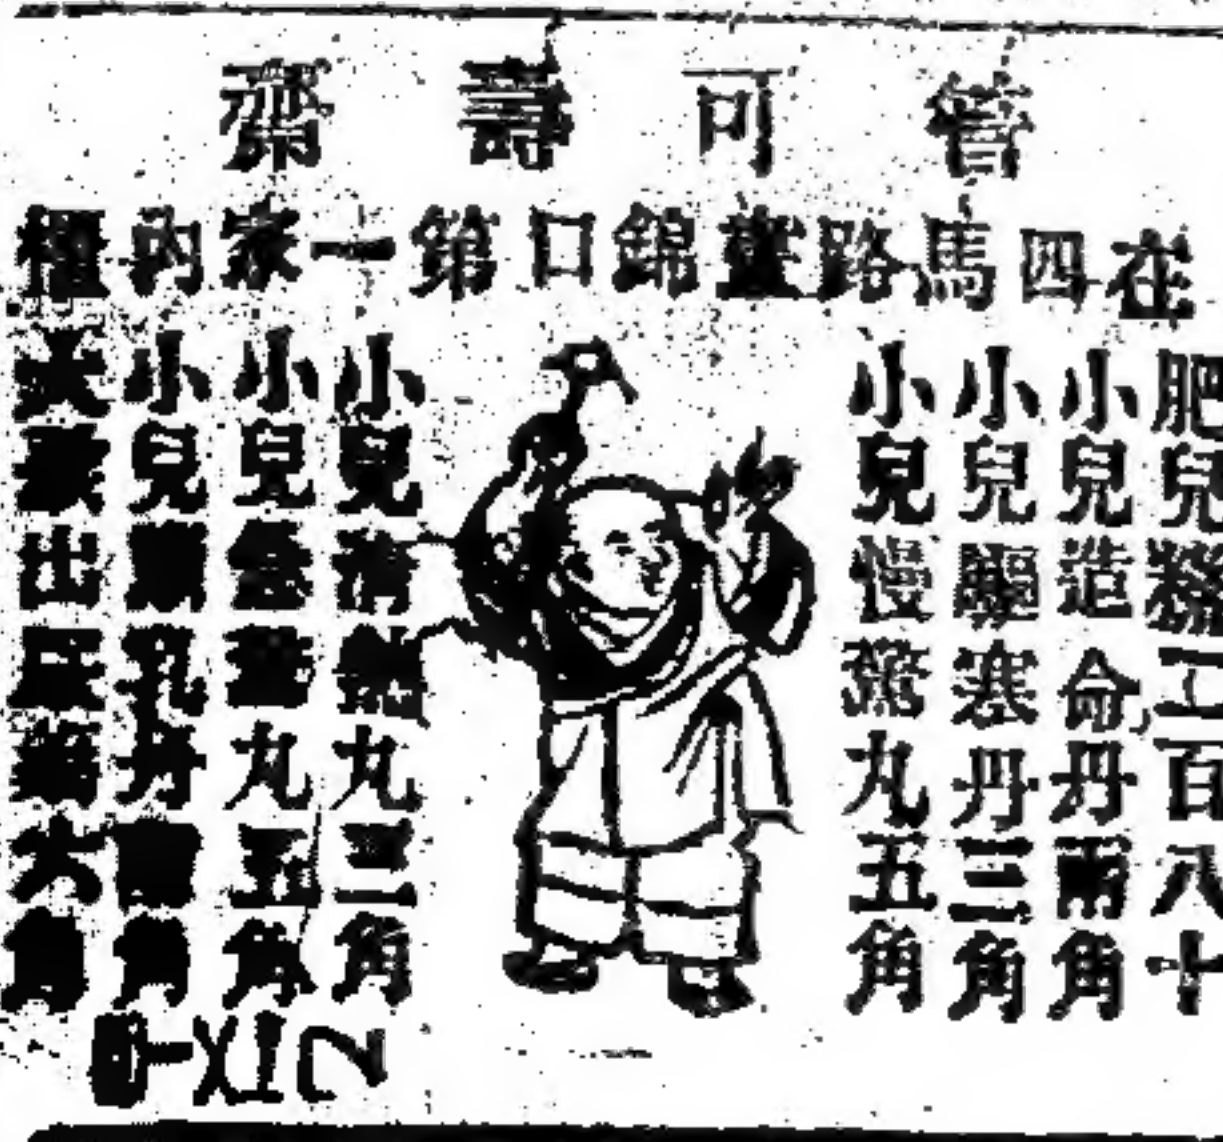 管可壽齋
在四馬路晝錦口第一家內櫃
肥兒糕工百八十
小兒造命丹兩角
小兒驅寒丹三角
小兒慢驚丸五角
小兒清熱丸三角
小兒急驚丸五角
小兒 角
出 六角